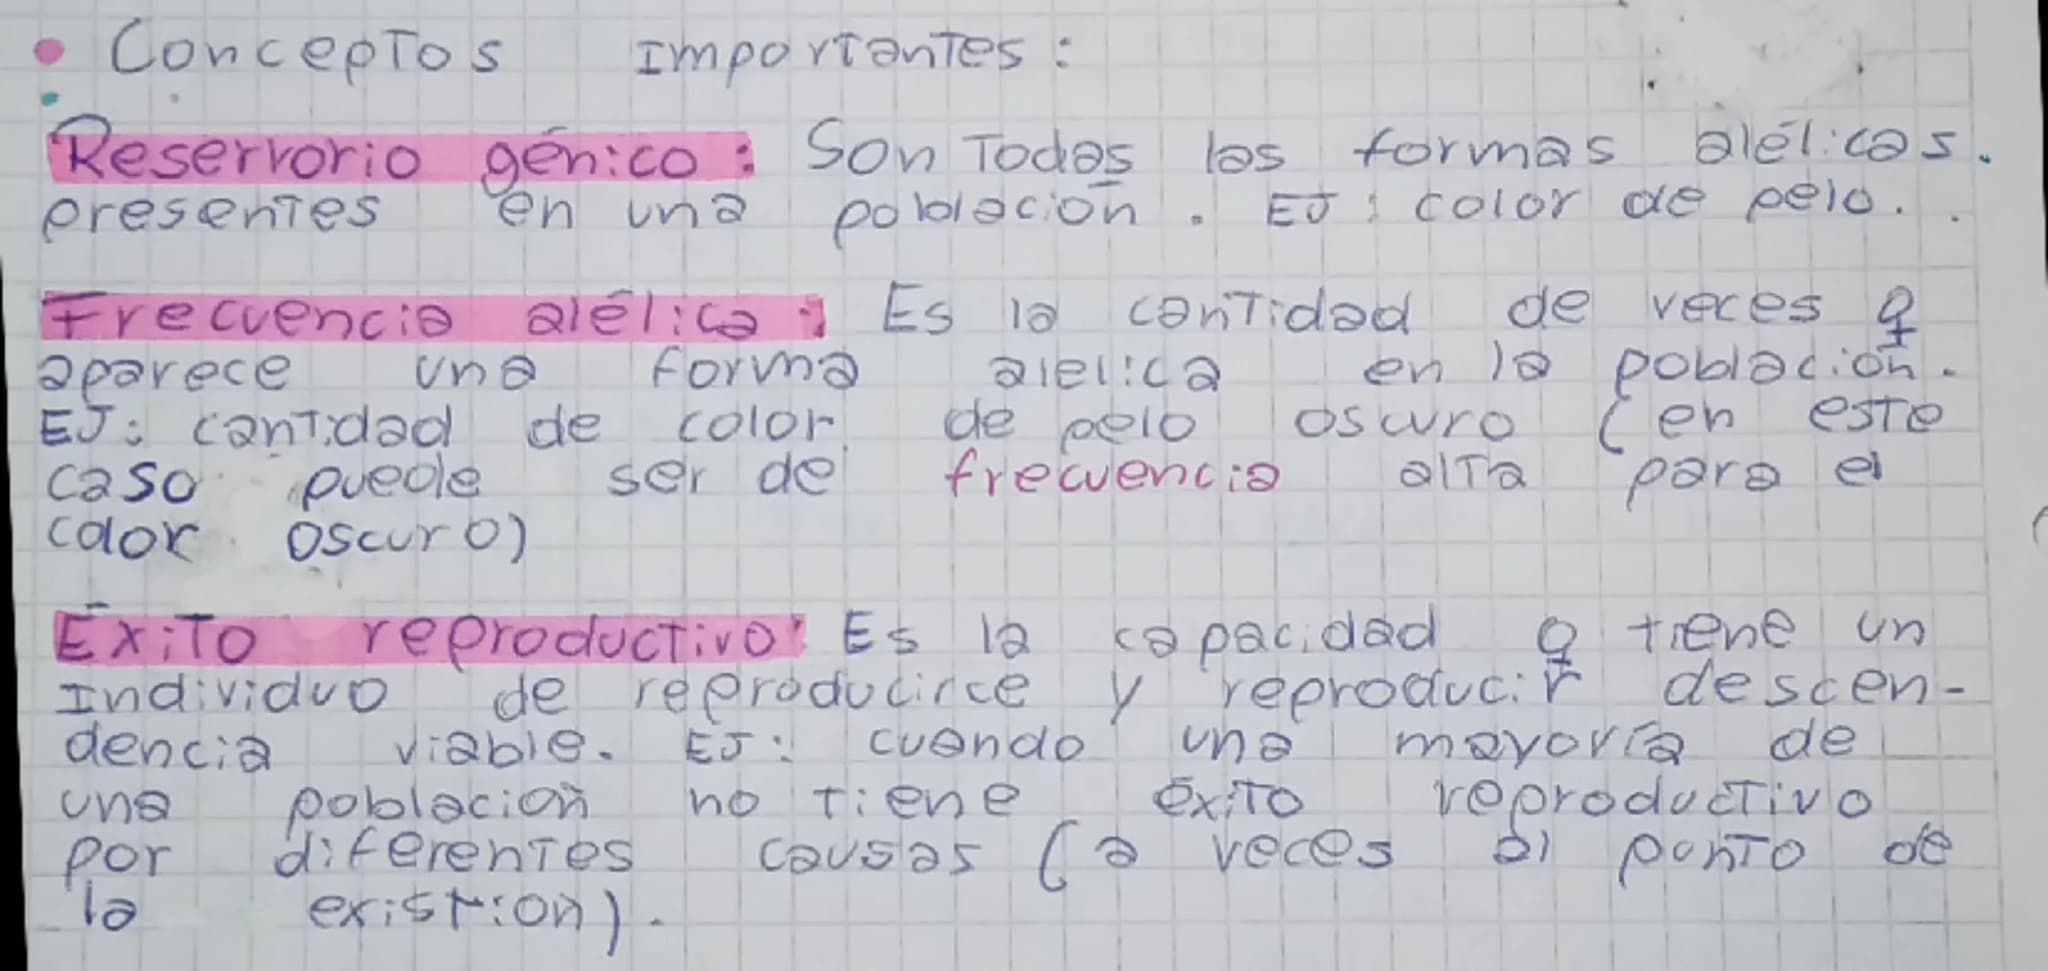 • Conceptos Importantes:
Reservorio génico: Son Todas las formas alélicas.
presentes en una población. EJ: color de pelo.
Frecuencia alélica: Es la canTidad de veces q
aparece una forma alelica en la población.
EJ: canTidad de color de pelo oscuro (en este
caso puede ser de frecuencia alTa para el
color oscuro)
Éxito reproductivo: Es la capacidad q tiene un
Individuo de reproducirce y reproducir descen-
dencia viable. EJ: cuando una mayoría de
una población no tiene éxito reproductivo
por diferentes causas (a veces al punto de
la existion).